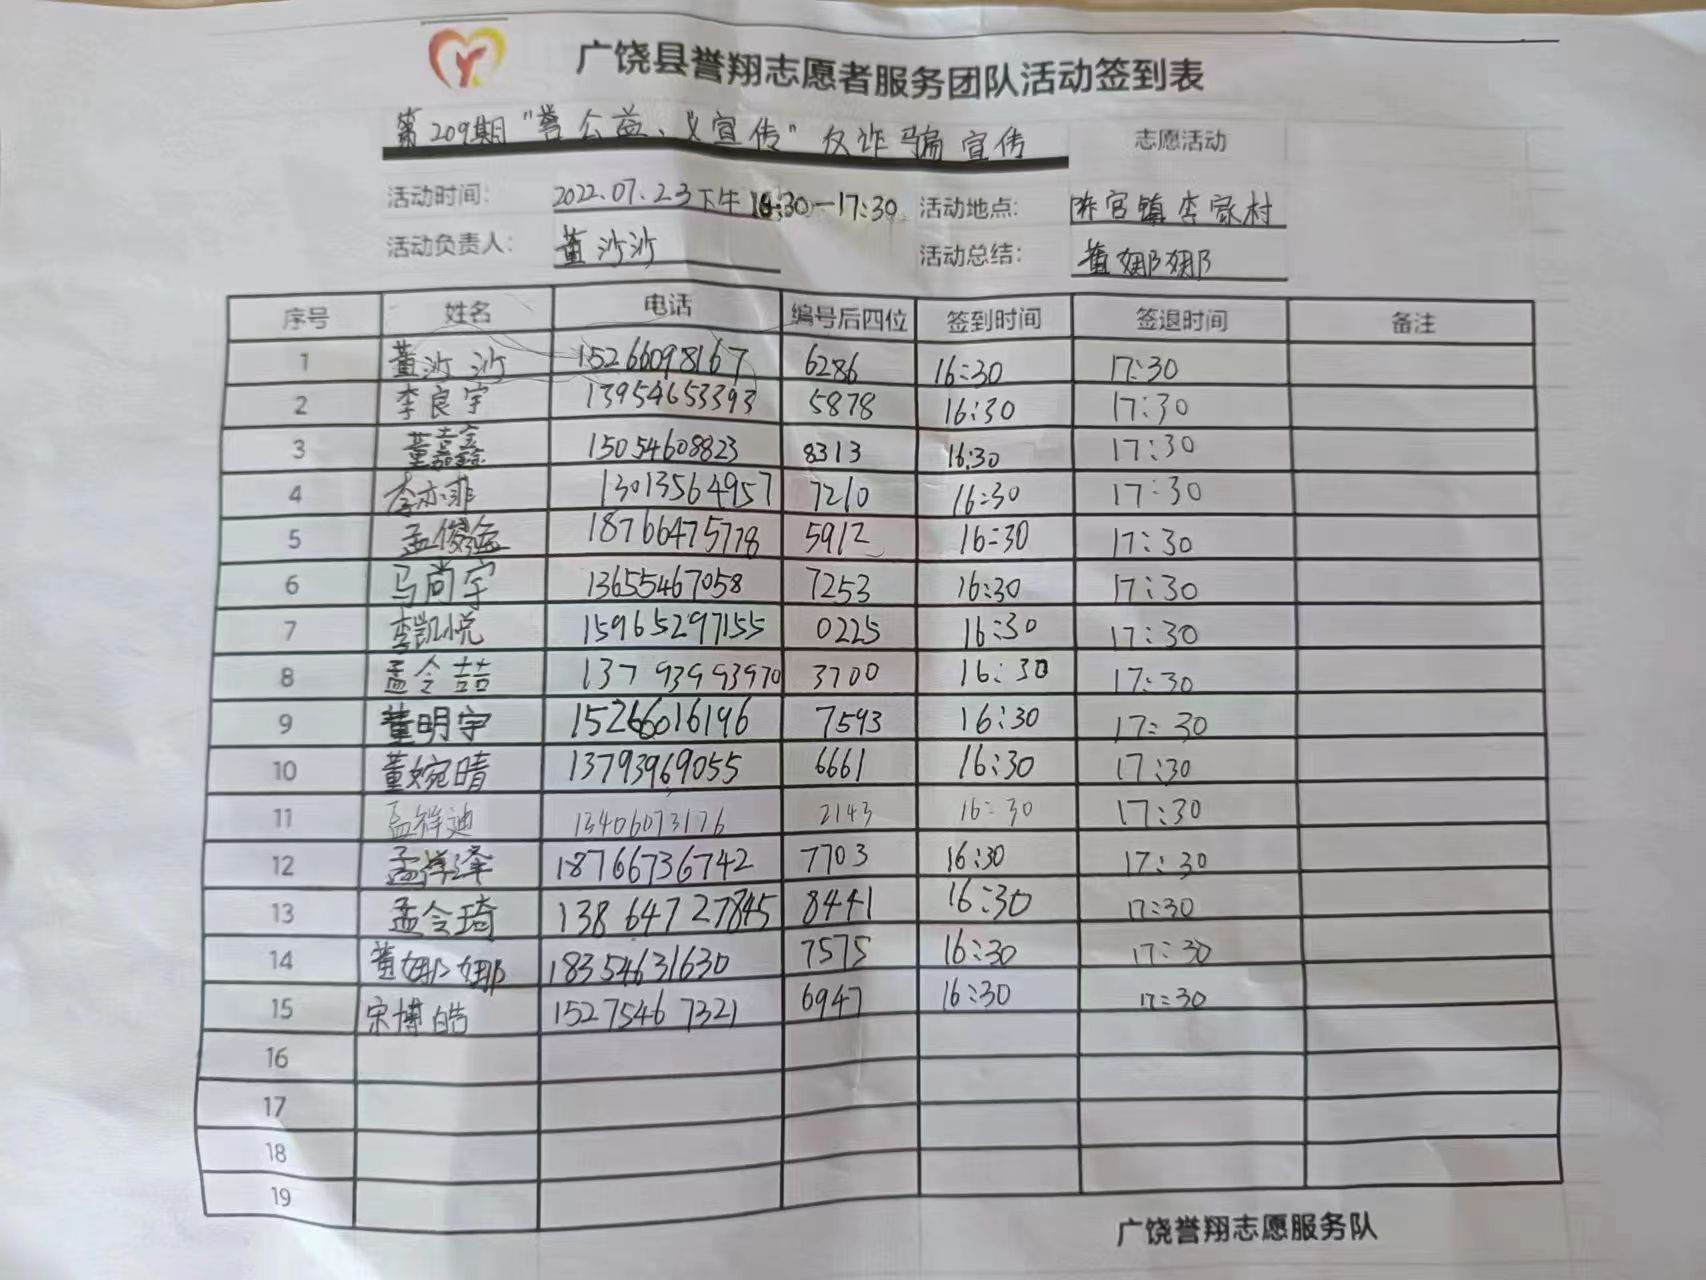 广饶县誉翔志愿者服务团队活动签到表
第209期"誉公益、义宣传"反诈骗宣传 志愿活动
活动时间: 2022.07.23下午16:30—17:30 活动地点: 陈官镇李家村
活动负责人: 董沙沙 活动总结: 董娜娜
序号 姓名 电话 编号后四位 签到时间 签退时间 备注
1 董沙沙 15266098167 6286 16:30 17:30
2 李良宇 13954653393 5878 16:30 17:30
3 董嘉鑫 15054608823 8313 16:30 17:30
4 李亦菲 13013564957 7210 16:30 17:30
5 孟俊 18766475778 5912 16:30 17:30
6 马尚宇 13655467058 7253 16:30 17:30
7 李凯悦 15965297155 0225 16:30 17:30
8 孟令喆 13793993970 3700 16:30 17:30
9 董明宇 15266016196 7593 16:30 17:30
10 董婉晴 13793969055 6661 16:30 17:30
11 孟祥迪 13406073176 2143 16:30 17:30
12 孟祥泽 18766736742 7703 16:30 17:30
13 孟令琦 13864727845 8441 16:30 17:30
14 董娜娜 18354631630 7575 16:30 17:30
15 宋博皓 15275467321 6947 16:30 17:30
16
17
18
19
广饶誉翔志愿服务队